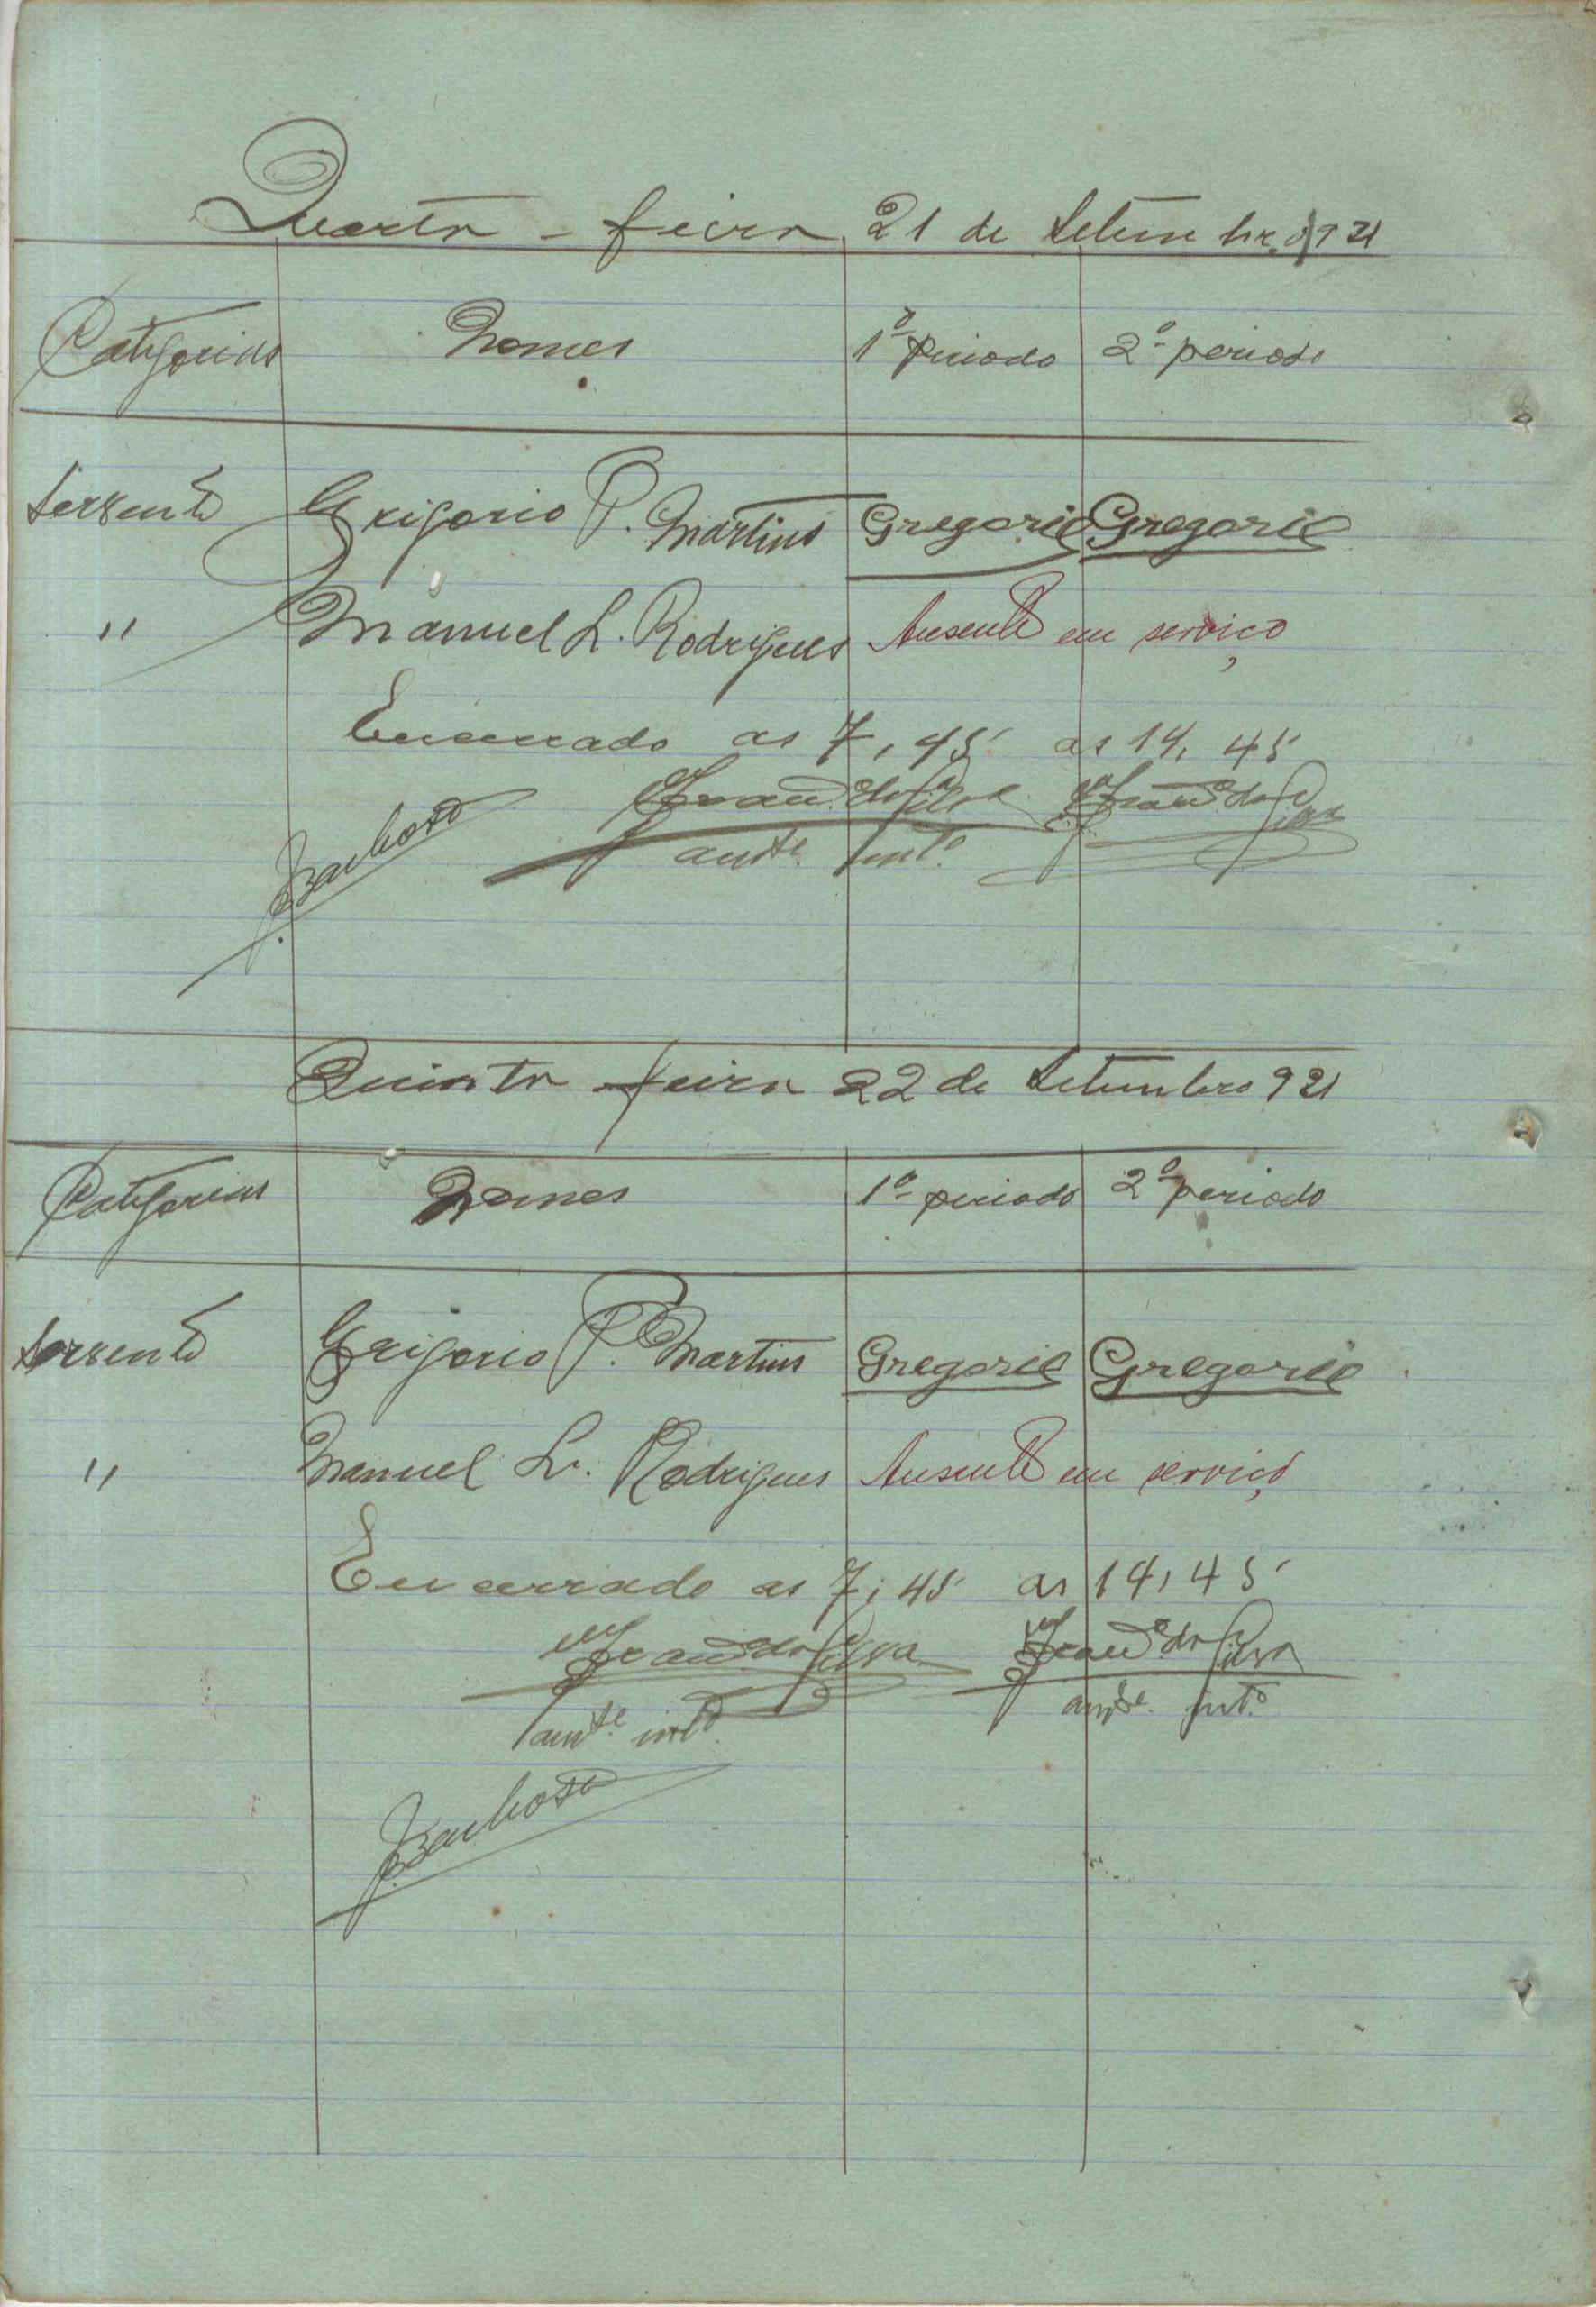 Quarta-feira 21 de Setembro 921
Categorias Nomes 1º periodo 2º periodo
Servente Grigorio P. Martins Gregorio Gregorio
" Manuel L. Rodrigues Ausente em serviço
Encerrado as 7,45 as 14,45
da Silva da Silva
Barbosa
Quinta-feira 22 de Setembro 921
Categorias Nomes 1º periodo 2º periodo
Servente Grigorio P. Martins Gregorio Gregorio
" Manuel L. Rodrigues Ausente em serviço
Encerrado as 7,45 as 14,45
da Silva da Silva
Barbosa